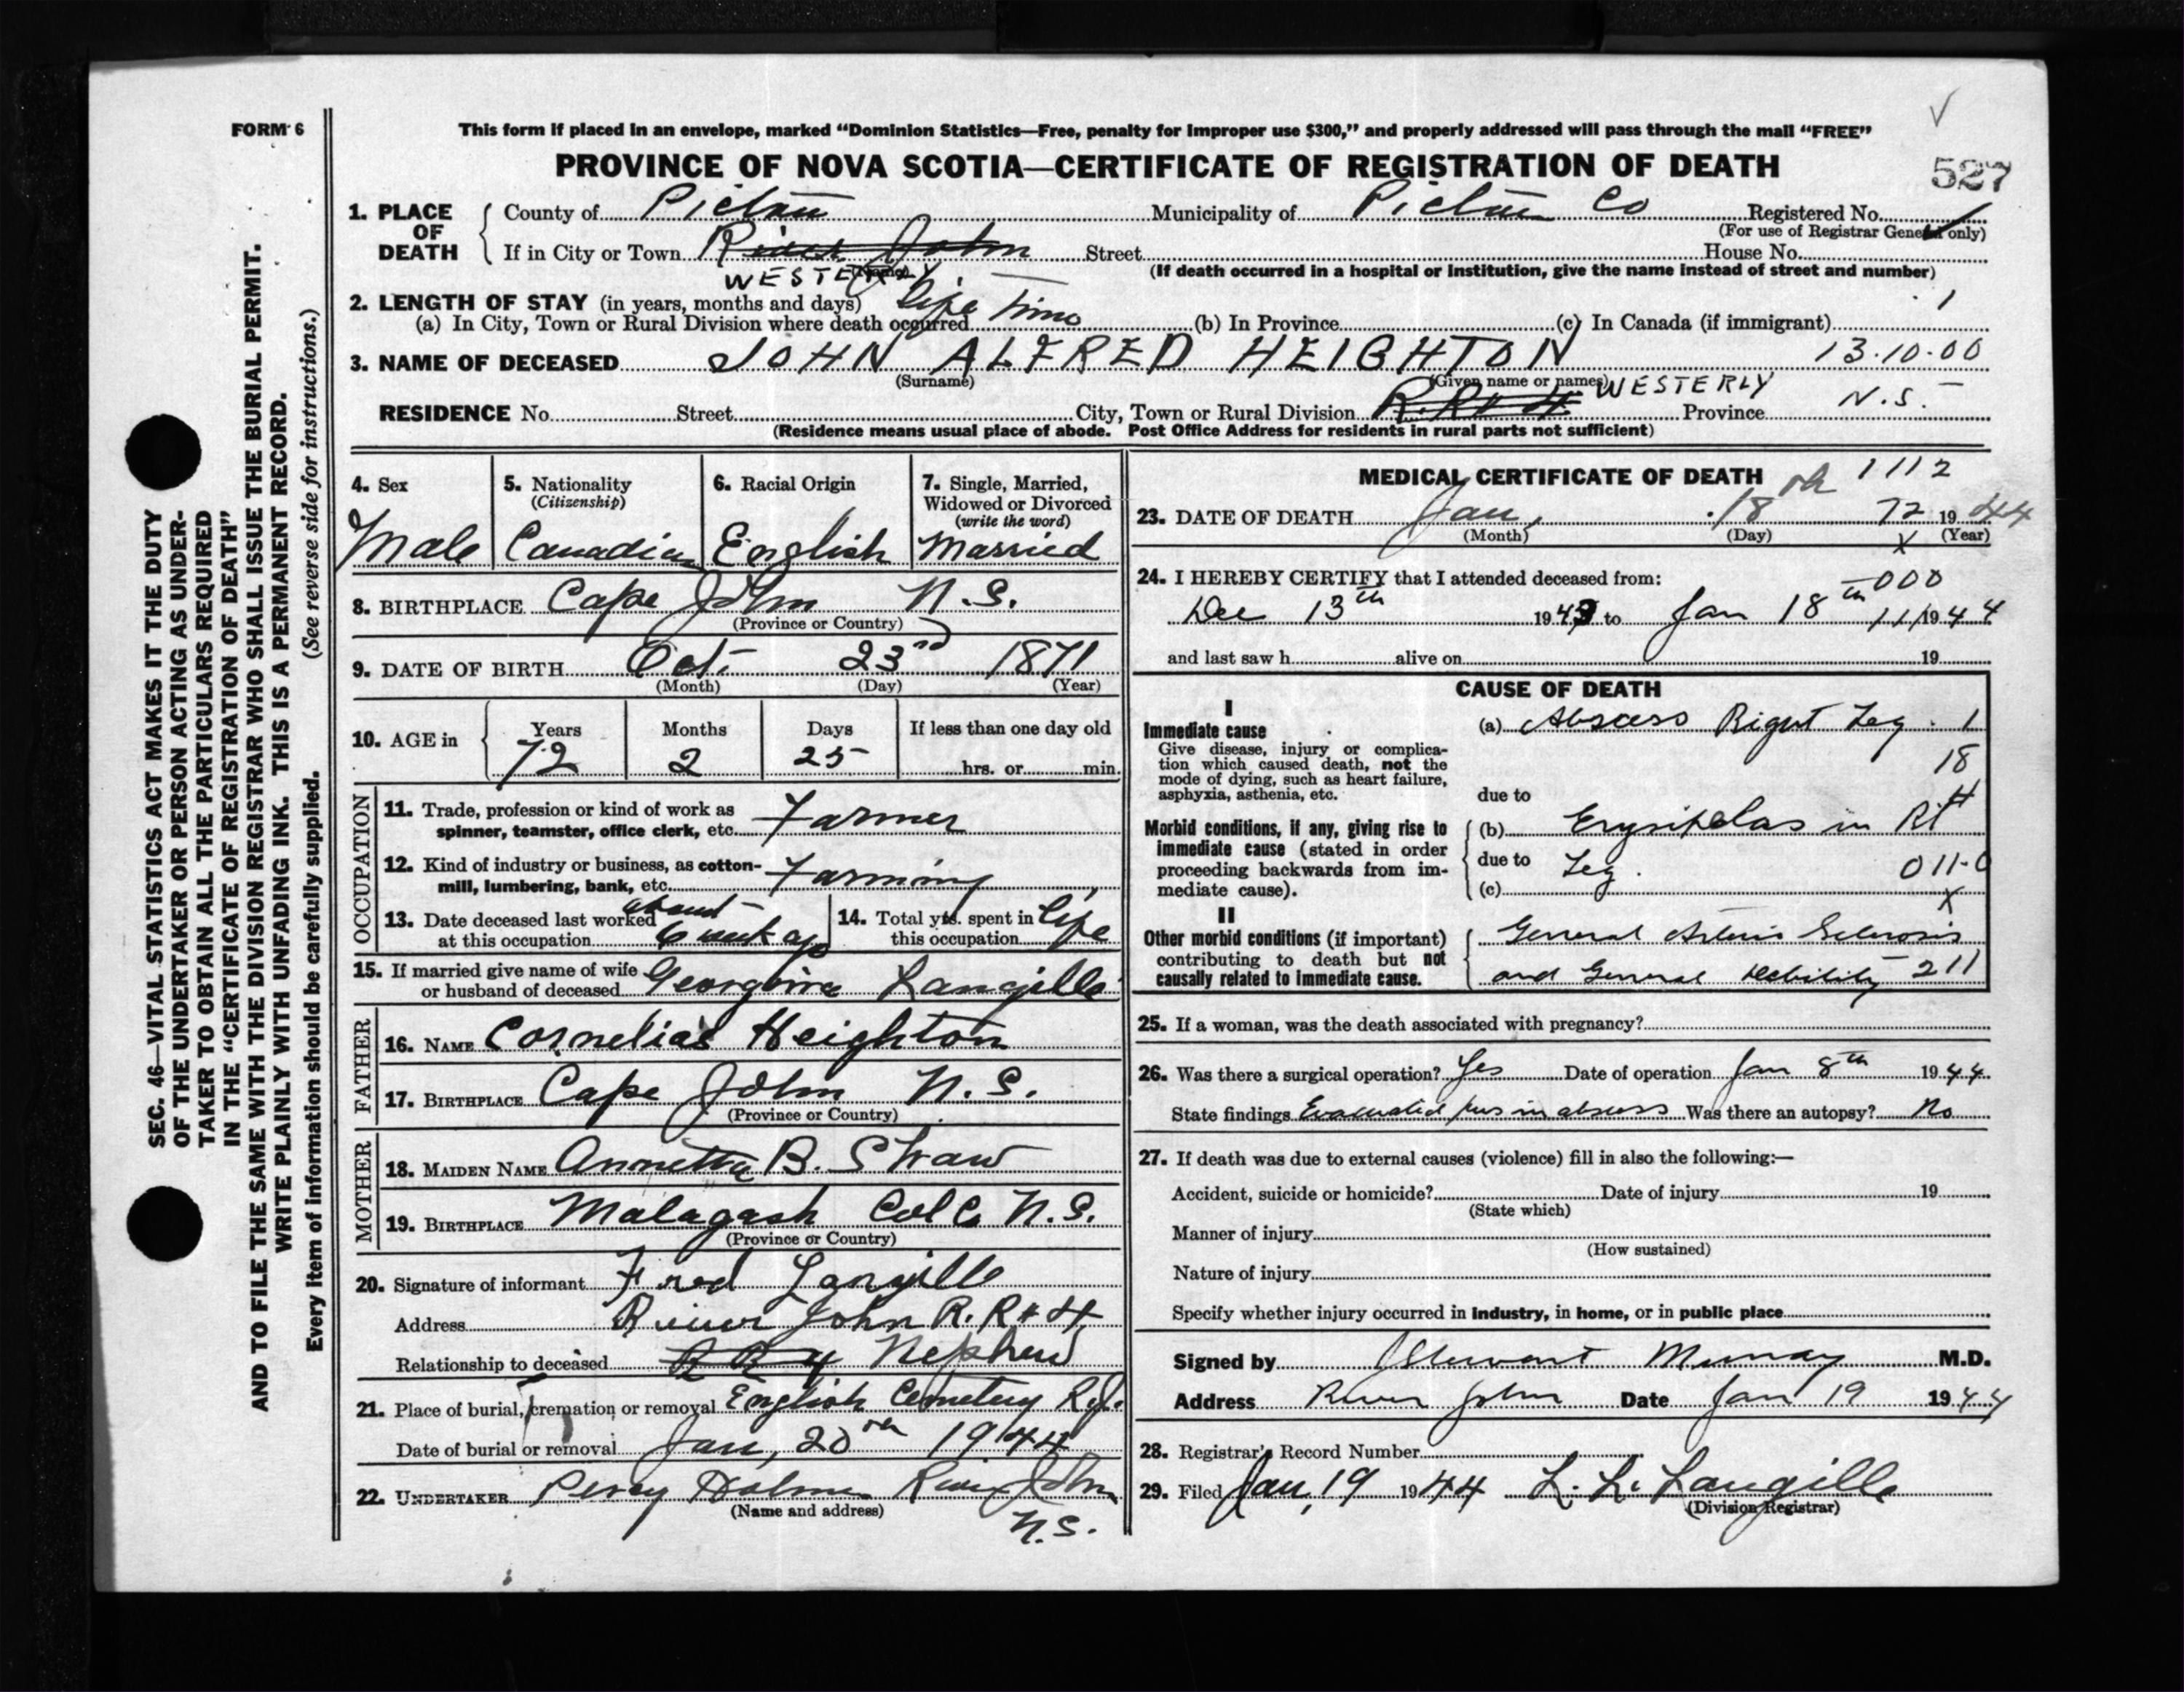 FORM 6
This form if placed in an envelope, marked “Dominion Statistics—Free, penalty for improper use $300,” and properly addressed will pass through the mail “FREE”
PROVINCE OF NOVA SCOTIA—CERTIFICATE OF REGISTRATION OF DEATH
527
1. PLACE OF DEATH
County of Pictou Municipality of Pictou Co Registered No.
(For use of Registrar General only)
If in City or Town River John Street House No.
WESTERLY
(If death occurred in a hospital or institution, give the name instead of street and number)
2. LENGTH OF STAY (in years, months and days) 1
(a) In City, Town or Rural Division where death occurred life time (b) In Province (c) In Canada (if immigrant)
3. NAME OF DECEASED JOHN ALFRED HEIGHTON 13.10.00
(Surname) (Given name or names)
RESIDENCE No. Street City, Town or Rural Division R.R#4 WESTERLY Province N.S.
(Residence means usual place of abode. Post Office Address for residents in rural parts not sufficient)
4. Sex
Male
5. Nationality
(Citizenship)
Canadian
6. Racial Origin
English
7. Single, Married,
Widowed or Divorced
(write the word)
Married
8. BIRTHPLACE Cape John N.S.
(Province or Country)
9. DATE OF BIRTH Oct. 23rd 1871
(Month) (Day) (Year)
10. AGE in
Years Months Days If less than one day old
72 2 25 hrs. or min.
OCCUPATION
11. Trade, profession or kind of work as
spinner, teamster, office clerk, etc. Farmer
12. Kind of industry or business, as cotton-
mill, lumbering, bank, etc. Farming
13. Date deceased last worked about
at this occupation 6 week ago
14. Total yrs. spent in
this occupation life
15. If married give name of wife
or husband of deceased Georgina Langille
FATHER
16. NAME Cornelias Heighton
17. BIRTHPLACE Cape John N.S.
(Province or Country)
MOTHER
18. MAIDEN NAME Annetta B. Shaw
19. BIRTHPLACE Malagash Col Co N.S.
(Province or Country)
20. Signature of informant Fred Langille
Address River John R.R#4
Relationship to deceased R R 4 Nephew
21. Place of burial, cremation or removal English Cemetery R.J.
Date of burial or removal Jan, 20th 1944
22. UNDERTAKER Percy Holmes River John
(Name and address)
N.S.
MEDICAL CERTIFICATE OF DEATH 1112
23. DATE OF DEATH Jan, 18th 72 1944
(Month) (Day) (Year)
X
24. I HEREBY CERTIFY that I attended deceased from: 000
Dec 13th 1943 to Jan 18th 11 1944
and last saw h alive on 19
CAUSE OF DEATH
I
Immediate cause
Give disease, injury or complica-
tion which caused death, not the
mode of dying, such as heart failure,
asphyxia, asthenia, etc.
(a) Abscess Right Leg. 1
18
due to
Morbid conditions, if any, giving rise to
immediate cause (stated in order
proceeding backwards from im-
mediate cause).
(b) Erysipelas in Rt
due to Leg. 011-0
(c)
X
II
Other morbid conditions (if important)
contributing to death but not
causally related to immediate cause.
General Arterio Sclerosis
and General Debility 211
25. If a woman, was the death associated with pregnancy?
26. Was there a surgical operation? Yes Date of operation Jan 8th 1944
State findings Evacuated pus in abscess Was there an autopsy? No
27. If death was due to external causes (violence) fill in also the following:—
Accident, suicide or homicide? Date of injury 19
(State which)
Manner of injury
(How sustained)
Nature of injury
Specify whether injury occurred in industry, in home, or in public place
Signed by J Stewart Murray M.D.
Address River John Date Jan 19 1944
28. Registrar's Record Number
29. Filed Jan, 19 1944 L. L. Langille
(Division Registrar)
SEC. 46—VITAL STATISTICS ACT MAKES IT THE DUTY
OF THE UNDERTAKER OR PERSON ACTING AS UNDER-
TAKER TO OBTAIN ALL THE PARTICULARS REQUIRED
IN THE “CERTIFICATE OF REGISTRATION OF DEATH”
AND TO FILE THE SAME WITH THE DIVISION REGISTRAR WHO SHALL ISSUE THE BURIAL PERMIT.
WRITE PLAINLY WITH UNFADING INK. THIS IS A PERMANENT RECORD.
(See reverse side for instructions.)
Every item of information should be carefully supplied.